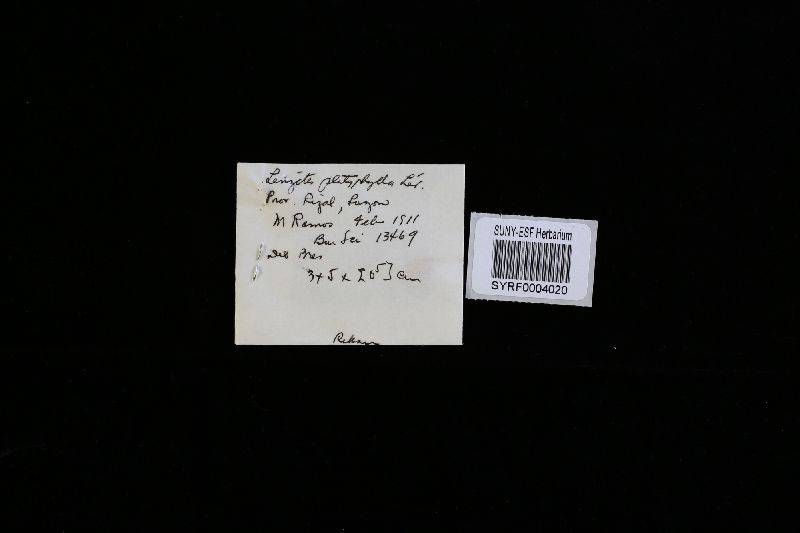 Lenzites platyphylla Lév.
Prov. Rizal, Luzon
M Ramos Feb 1911
Bur Sci 13469
Det Bres
3 x 5 x cm
SUNY-ESF Herbarium
SYRF0004020